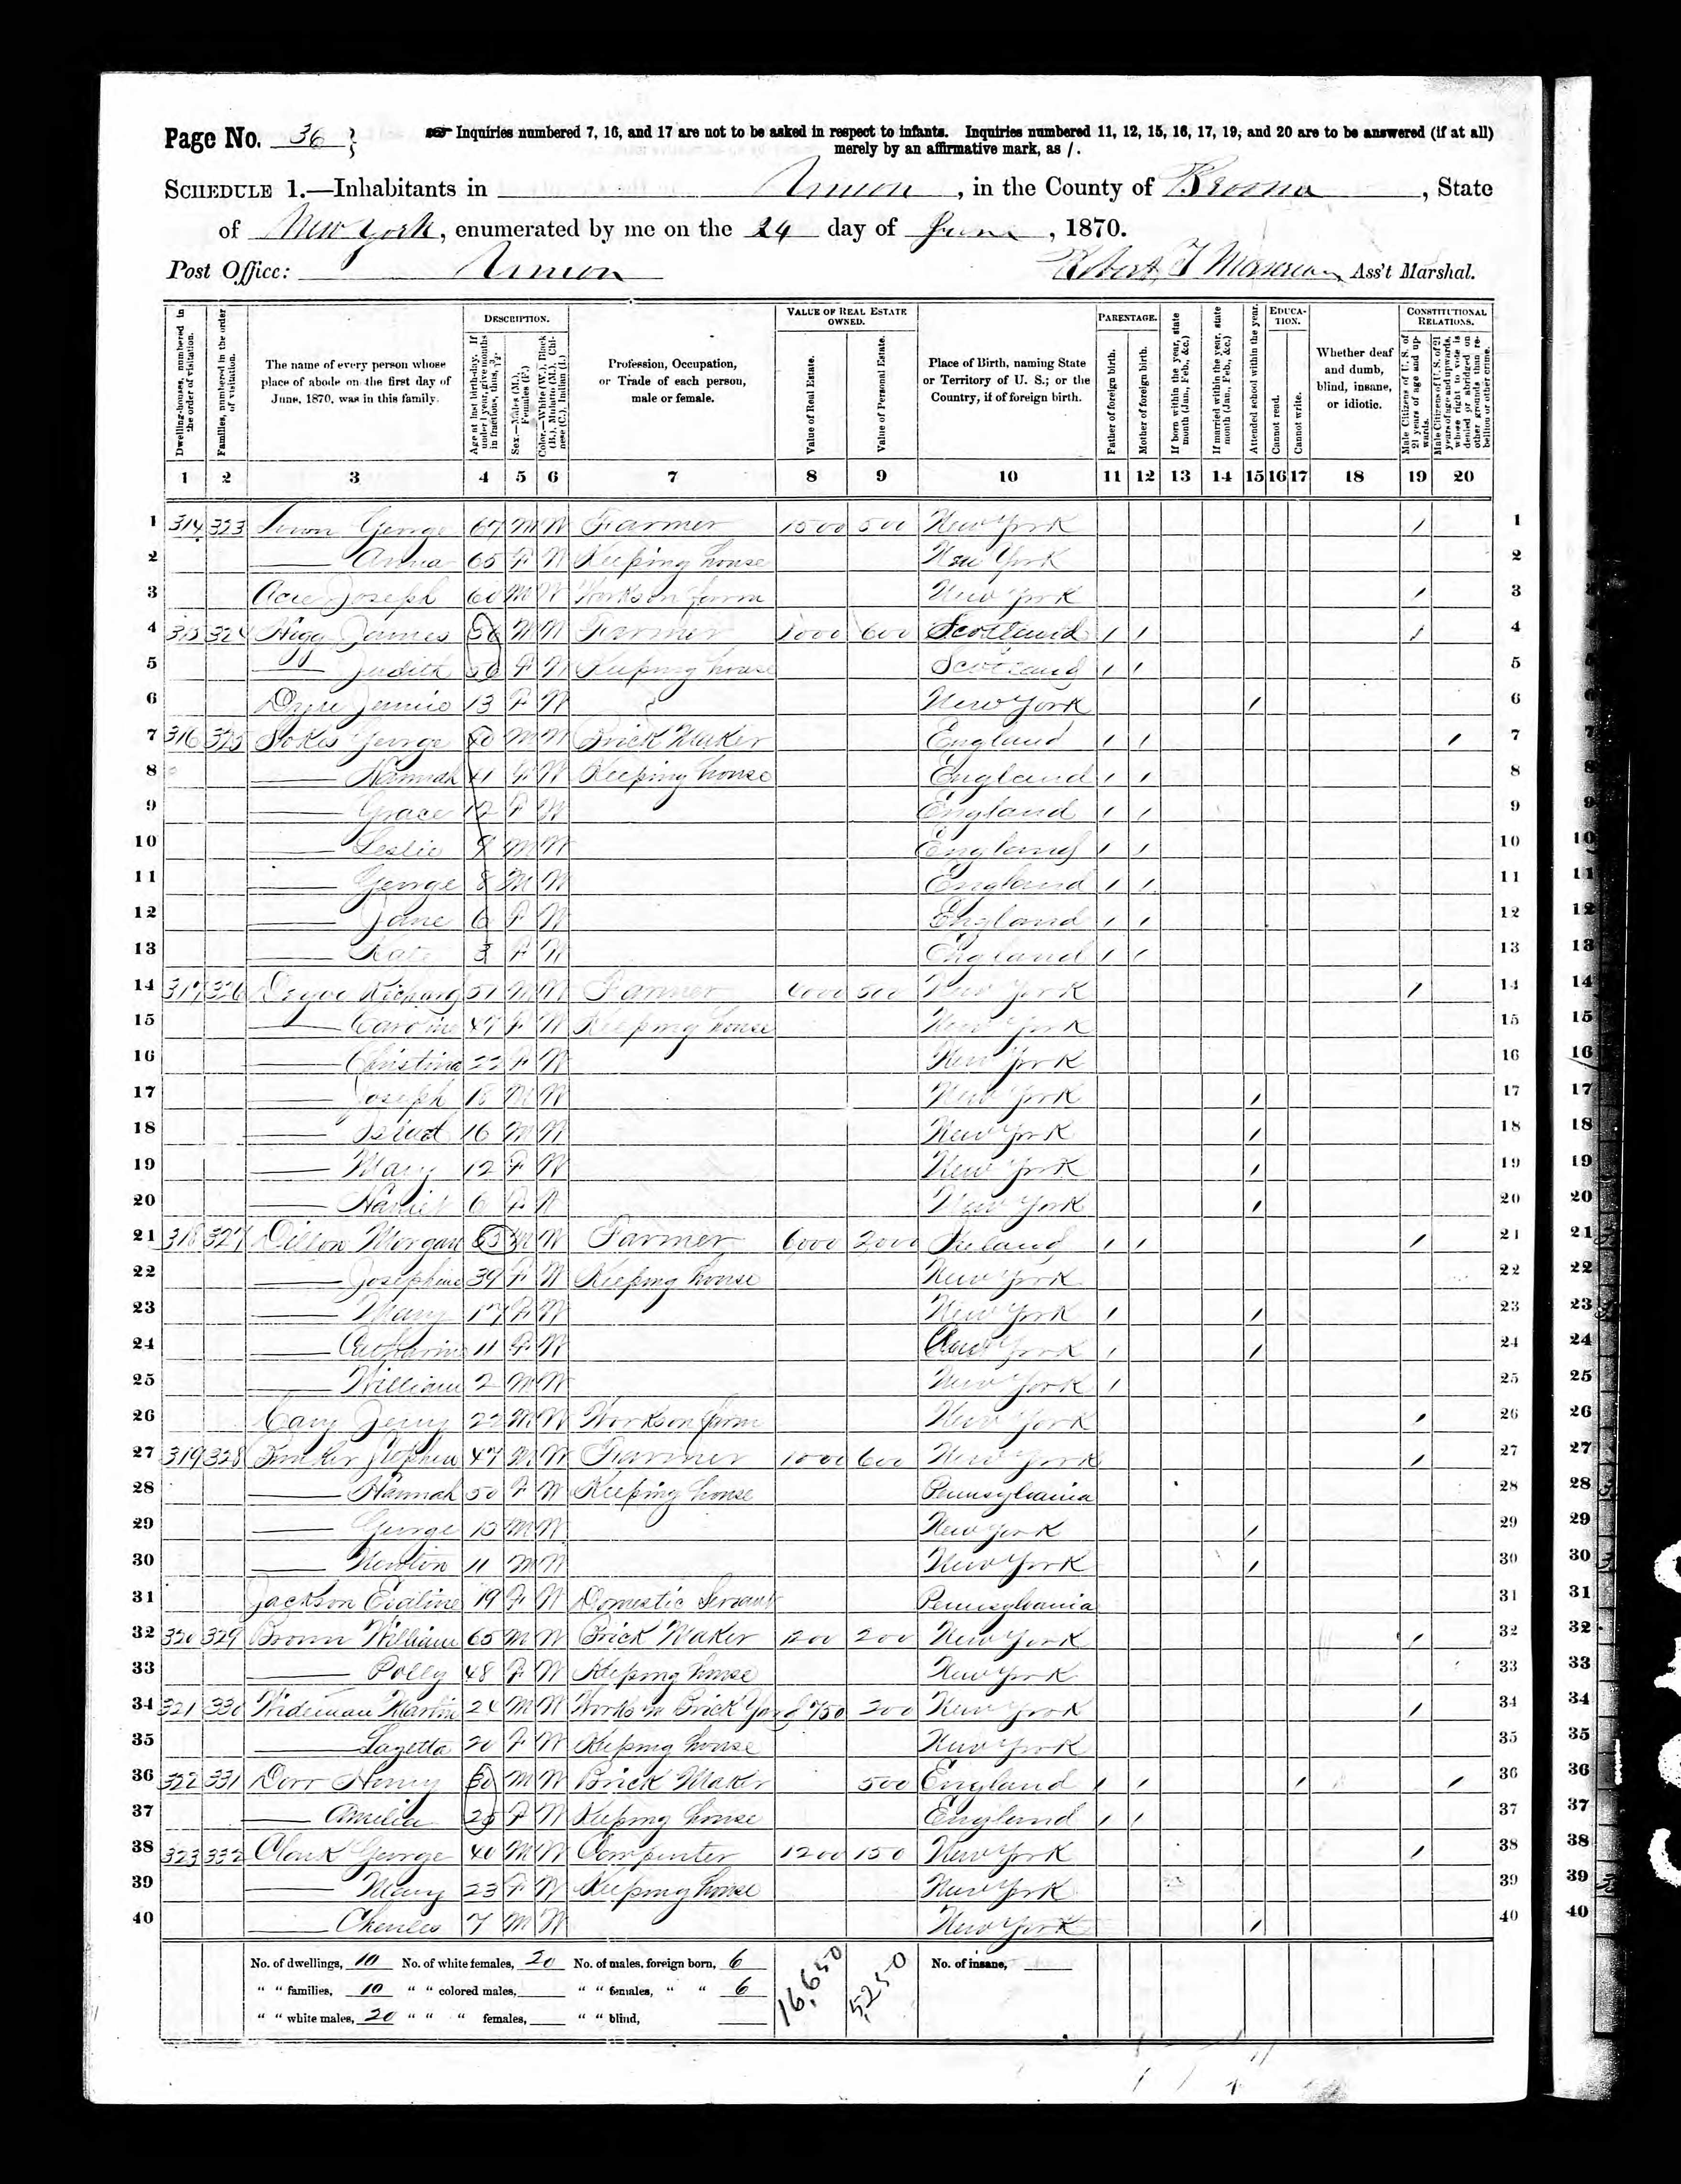 Page No. 36
Inquiries numbered 7, 16, and 17 are not to be asked in respect to infants. Inquiries numbered 11, 12, 15, 16, 17, 19, and 20 are to be answered (if at all)
merely by an affirmative mark, as /.
SCHEDULE 1.—Inhabitants in Union, in the County of Broome, State
of New York, enumerated by me on the 24 day of June, 1870.
Post Office: Union Robert Ass't Marshal.
Dwelling-houses, numbered in the order of visitation.
Families, numbered in the order of visitation.
The name of every person whose place of abode on the first day of June, 1870, was in this family.
DESCRIPTION.
Age at last birth-day. If under 1 year, give months in fractions, thus, 3/12.
Sex.—Males (M.), Females (F.)
Color.—White (W.), Black (B.), Mulatto (M.), Chinese (C.), Indian (I.)
Profession, Occupation, or Trade of each person, male or female.
VALUE OF REAL ESTATE OWNED.
Value of Real Estate.
Value of Personal Estate.
Place of Birth, naming State or Territory of U. S.; or the Country, if of foreign birth.
PARENTAGE.
Father of foreign birth.
Mother of foreign birth.
If born within the year, state month (Jan., Feb., &c.)
If married within the year, state month (Jan., Feb., &c.)
Attended school within the year.
EDUCATION.
Cannot read.
Cannot write.
Whether deaf and dumb, blind, insane, or idiotic.
CONSTITUTIONAL RELATIONS.
Male Citizens of U. S. of 21 years of age and upwards.
Male Citizens of U. S. of 21 years of age and upwards, whose right to vote is denied or abridged on other grounds than rebellion or other crime.
1 2 3 4 5 6 7 8 9 10 11 12 13 14 15 16 17 18 19 20
1 314 323 George 67 M W Farmer 1500 500 New York / 1
2 —— Anna 65 F W Keeping house New York 2
3 Acre Joseph 60 M W Works on farm New York / 3
4 315 324 Higg James 56 M W Farmer 1000 600 Scotland / / / 4
5 —— Judith 56 F W Keeping house Scotland / / 5
6 Jennie 13 F W New York / 6
7 316 325 Stokes George 40 M W Brick Maker England / / / 7
8 —— Hannah 41 F W Keeping house England / / 8
9 —— Grace 12 F W England / / 9
10 —— Leslie 9 M W England / / 10
11 —— George 8 M W England / / 11
12 —— Jane 6 F W England / / 12
13 —— Kate 3 F W England / / 13
14 317 326 Richard 51 M W Farmer 4000 500 New York / 14
15 —— Caroline 47 F W Keeping house New York 15
16 —— Christina 22 F W New York 16
17 —— Joseph 18 M W New York / 17
18 —— 16 M W New York / 18
19 —— Mary 12 F W New York / 19
20 —— Harriet 6 F W New York / 20
21 318 327 Dillon Morgan 65 M W Farmer 6000 2000 Ireland / / / 21
22 —— Josephine 39 F W Keeping house New York 22
23 —— Mary 17 F W New York / / 23
24 —— Catharine 11 F W New York / / 24
25 —— William 2 M W New York / 25
26 Cary Jerry 22 M W Works on farm New York / 26
27 319 328 Stephen 47 M W Farmer 1000 600 New York / 27
28 —— Hannah 50 F W Keeping house Pennsylvania 28
29 —— George 15 M W New York / 29
30 —— Newton 11 M W New York / 30
31 Jackson Evaline 19 F W Domestic Servant Pennsylvania 31
32 320 329 Brown William 65 M W Brick Maker 1200 200 New York / 32
33 —— Polly 48 F W Keeping house New York 33
34 321 330 Wideman Martin 24 M W Works in Brick Yard 750 200 New York / 34
35 —— Lazetta 20 F W Keeping house New York 35
36 322 331 Dorr Henry 30 M W Brick Maker 500 England / / / / 36
37 —— Amelia 25 F W Keeping house England / / 37
38 323 332 Clark George 40 M W Carpenter 1200 150 New York / 38
39 —— Mary 23 F W Keeping house New York 39
40 —— Charles 7 M W New York / 40
No. of dwellings, 10 No. of white females, 20 No. of males, foreign born, 6 16,650 5,250 No. of insane,
" " families, 10 " " colored males, " " females, " " 6
" " white males, 20 " " " females, " " blind,